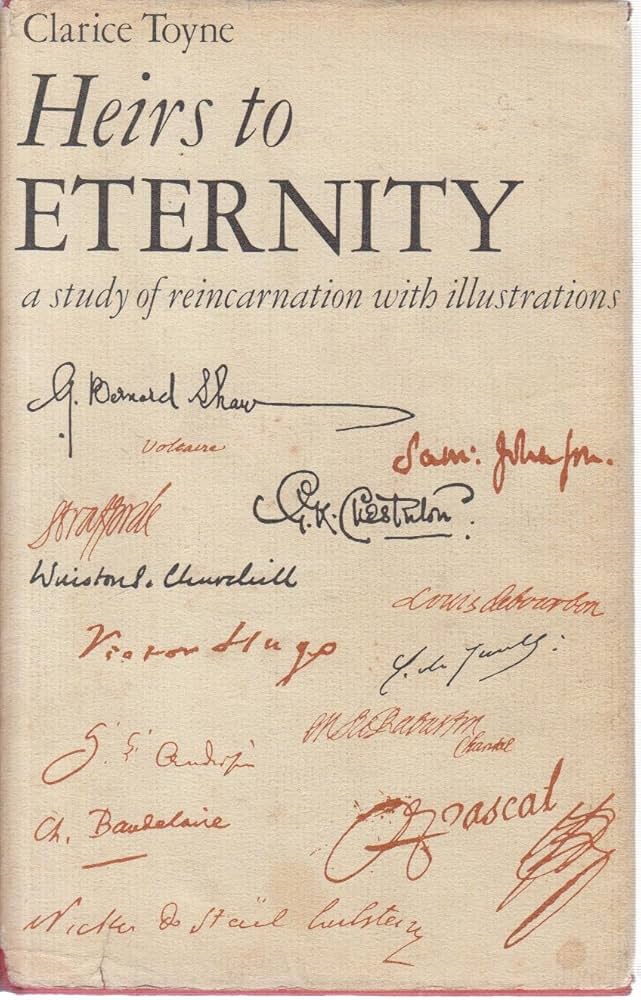 Clarice Toyne
Heirs to
ETERNITY
a study of reincarnation with illustrations
G. Bernard Shaw
Voltaire
Sam: Johnson.
Strafforde
G.K. Chesterton
Winston S. Churchill
Louis de bourbon
Victor Hugo
Ch. Baudelaire
Pascal
Necker de Staël holstein